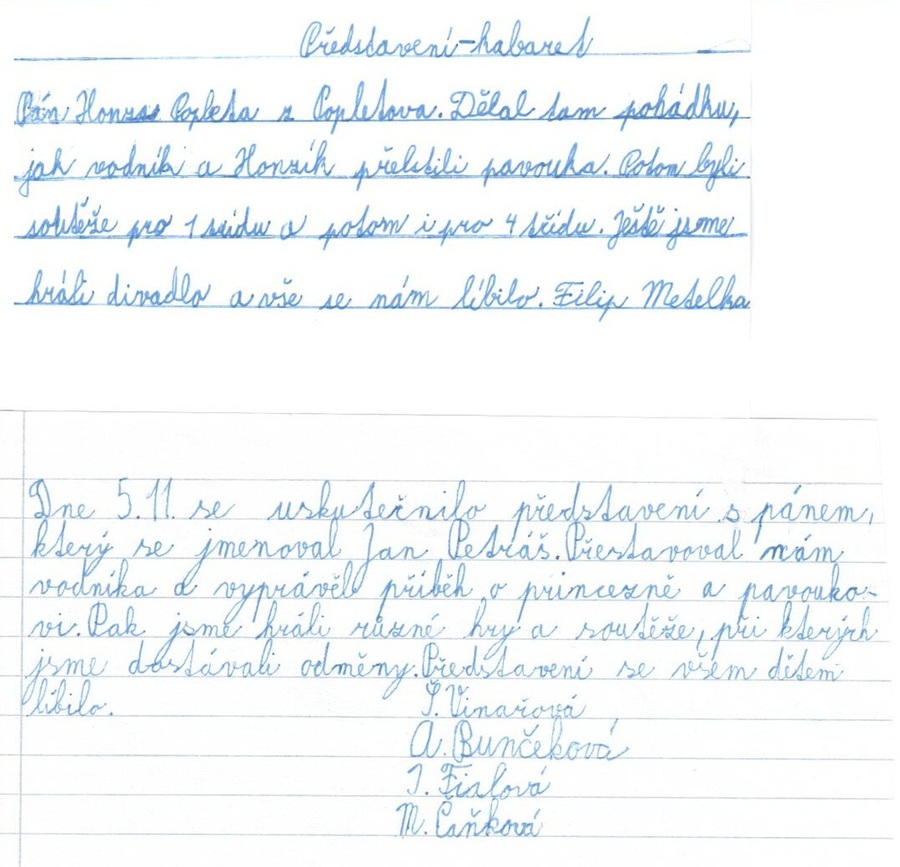 Představení-kabaret
Pán Honza Popleta z Popletova. Dělal tam pohádku,
jak vodník a Honzík přelstili pavouka. Potom byli
soutěže pro 1 třídu a potom i pro 4 třídu. Ještě jsme
hráli divadlo a vše se nám líbilo. Filip Metelka
Dne 5.11. se uskutečnilo představení s pánem,
který se jmenoval Jan Petráš. Přestavoval nám
vodníka a vyprávěl příběh o princezně a pavouko-
vi. Pak jsme hráli různé hry a soutěže, při kterých
jsme dostávali odměny. Představení se všem dětem
líbilo.
Š. Vinařová
A. Bunčeková
J. Fialová
M. Čaňková